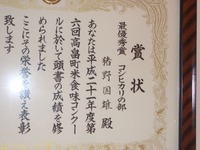 賞状
最優秀賞 コシヒカリの部
猪野国雄 殿
あなたは平成二十一年度第
六回高畠町米食味コンクー
ルに於いて頭書の成績を修
められました
ここにその栄誉を讃え表彰
致します